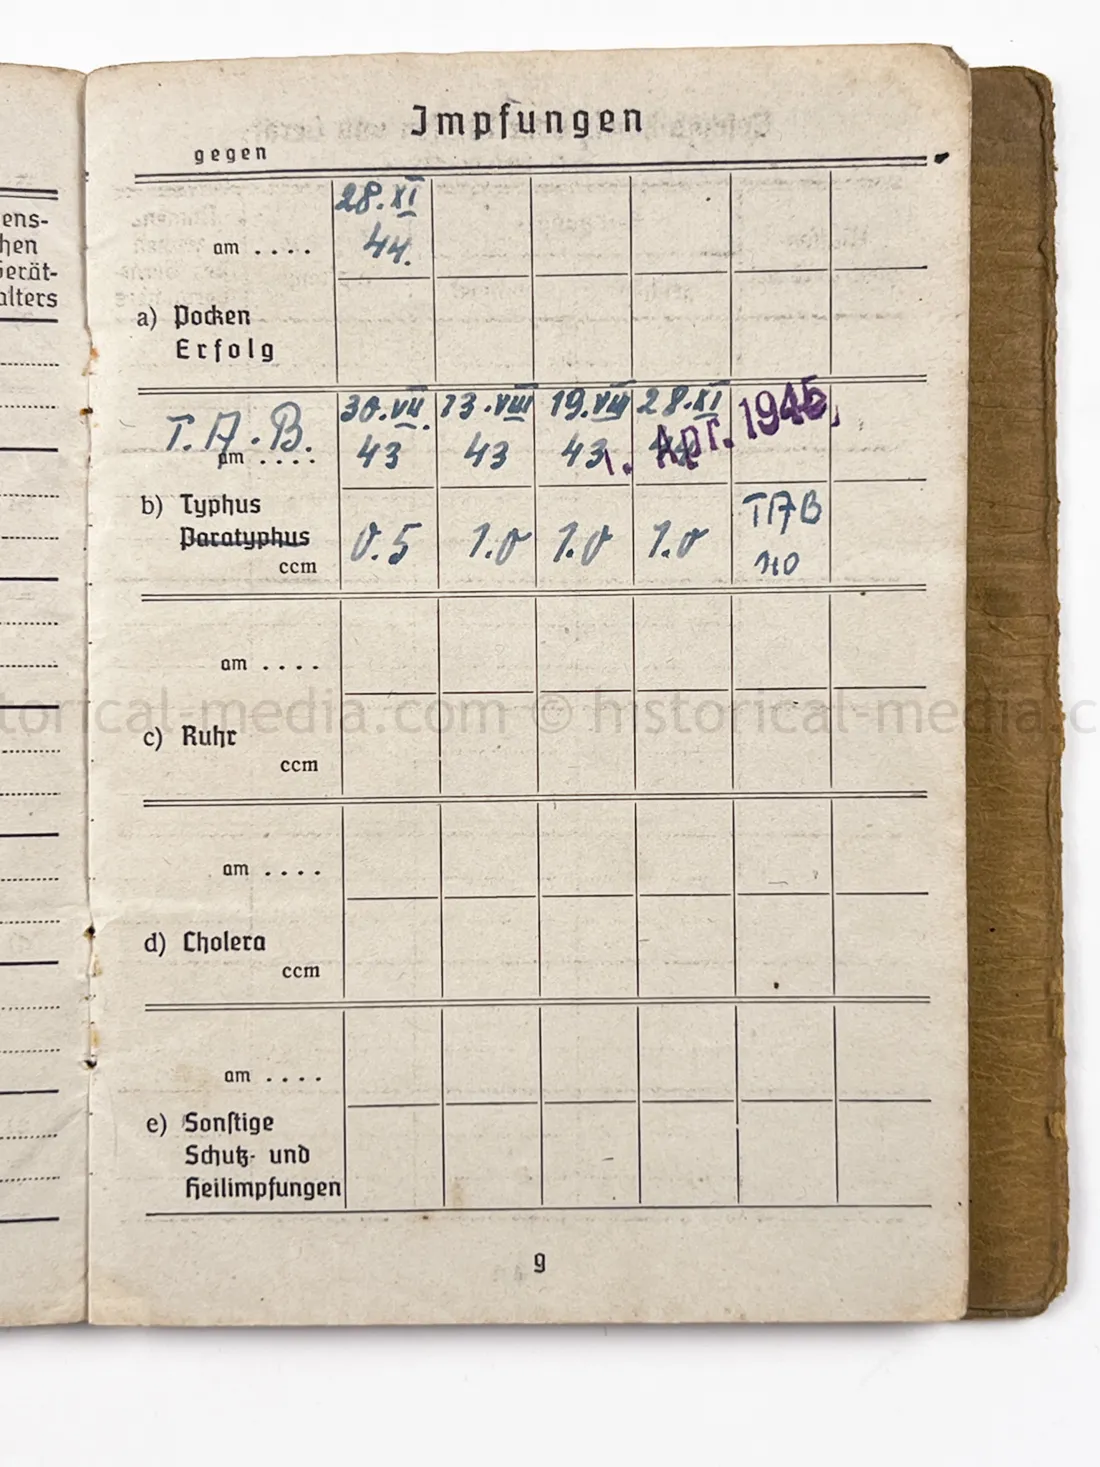 ens-
hen
Gerät-
alters
Impfungen
gegen
28.XI
44.
am . . . .
a) Pocken
Erfolg
T.A.B.
30.VII.
43
13.VIII
43
19.VIII
43
28.XI
44
1. Apr. 1945
am . . . .
b) Typhus
Paratyphus
ccm
0.5
1.0
1.0
1.0
TAB
am . . . .
c) Ruhr
ccm
torical-media.com © historical-media.c
am . . . .
d) Cholera
ccm
am . . . .
e) Sonstige
Schutz- und
Heilimpfungen
9